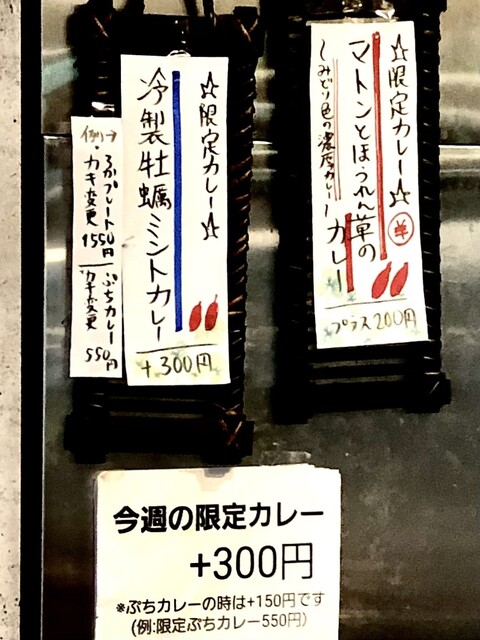 ☆限定カレー☆
マトンとほうれん草の
カレー
〜みどり色の濃厚カレー〜
プラス200円
☆限定カレー☆
冷製牡蠣ミントカレー
+300円
例→
カキ変更
1550円
ぷちカレー
カキ変更
550円
今週の限定カレー
+300円
※ぷちカレーの時は+150円です
(例:限定ぷちカレー550円)